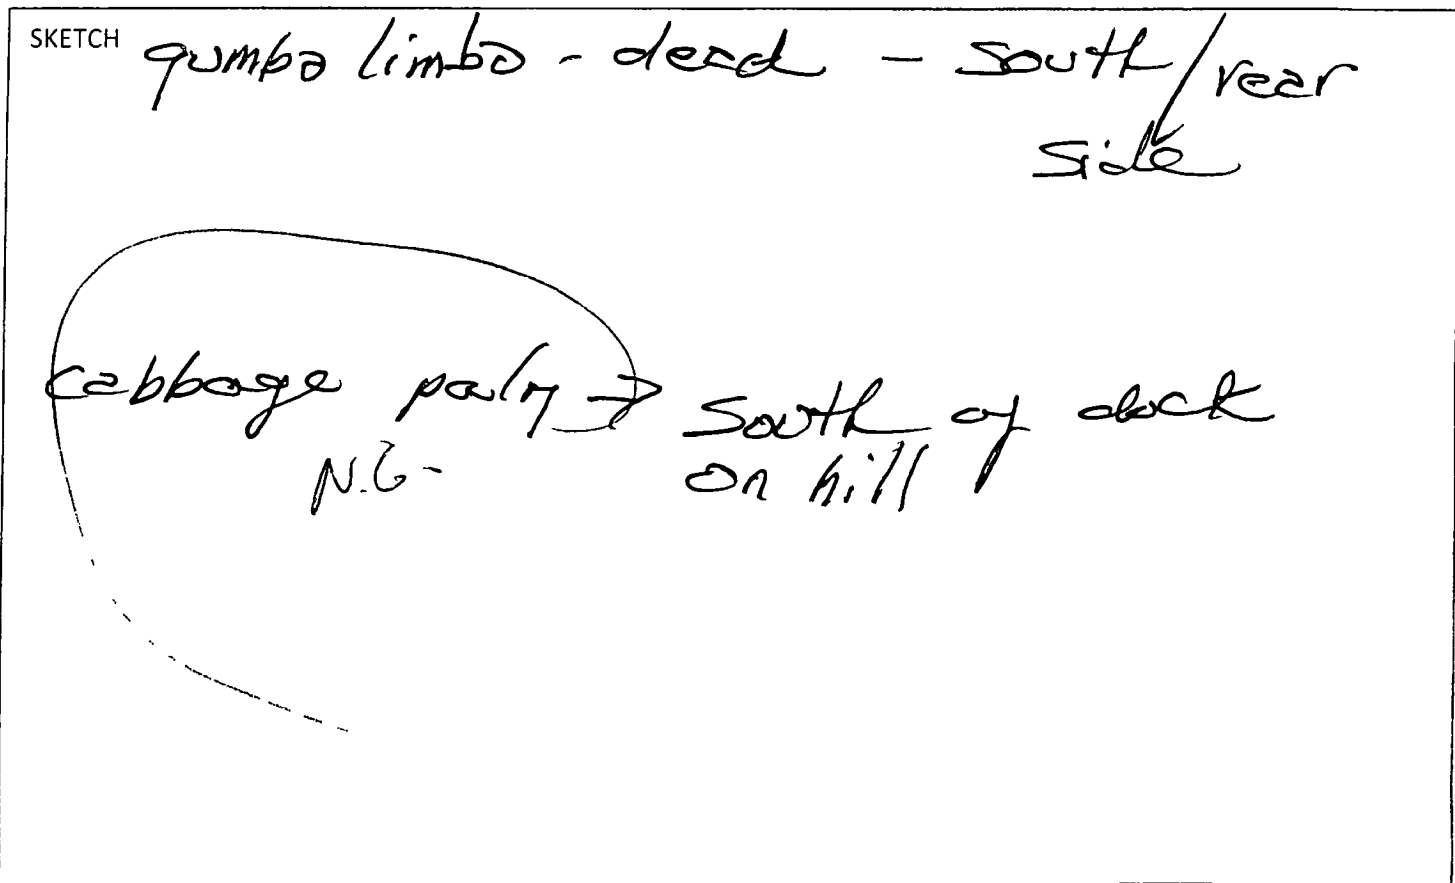 SKETCH gumbo limbo - dead - south/rear
side
cabbage palm → south of dock
N.G- on hill